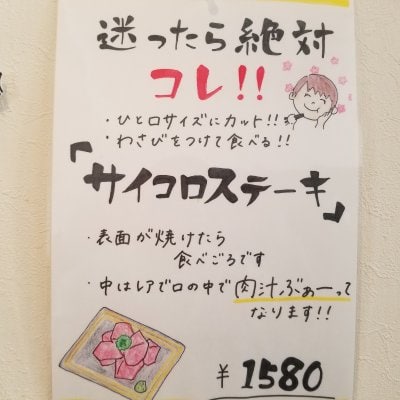 迷ったら絶対
コレ!!
・ひと口サイズにカット!!
・わさびをつけて食べる!!
「サイコロステーキ」
・表面が焼けたら
食べごろです
・中はレアで口の中で肉汁ぶぁーって
なります!!
¥1580